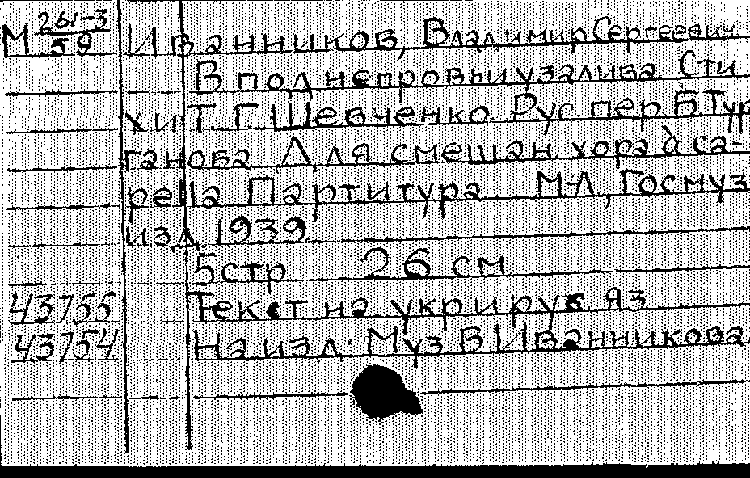 М 261-3/59 Иванников, Владимир Сергеевич
В поднепровьи у залива Сти
хи Т Г Шевченко Рус пер Б Тур
ганова Для смешан хора à ca-
pella Партитура М-Л, Госмуз
изд 1939
5 стр 26 см
43755 Текст на укр и рус яз
43754 На изд. Муз В Иванникова